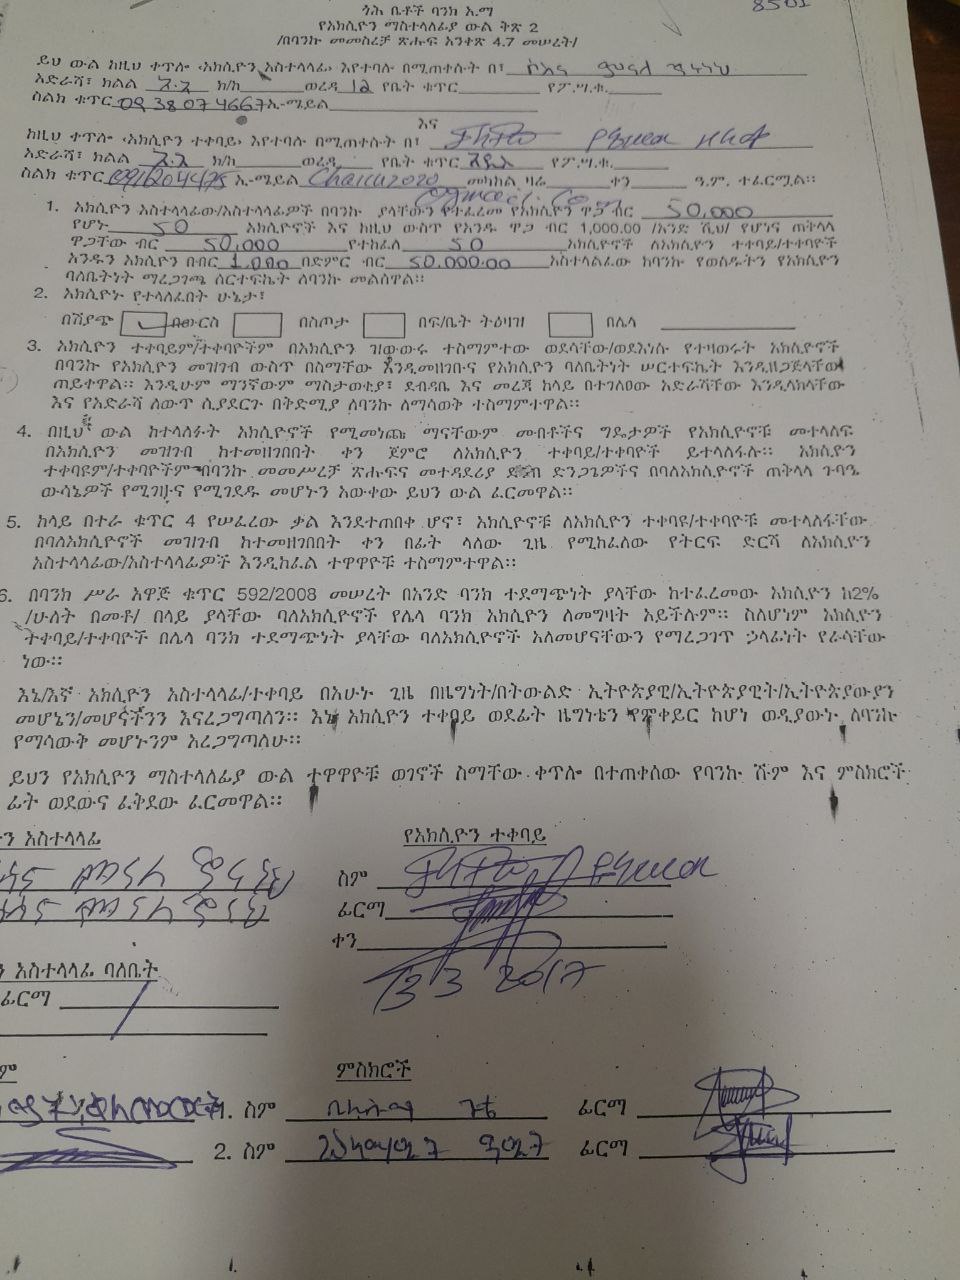 8501
ጎሕ ቤቶች ባንክ አ.ማ
የአክሲዮን ማስተላለፊያ ውል ቅጽ 2
/በባንኩ መመስረቻ ጽሑፍ አንቀጽ 4.7 መሠረት/
ይህ ውል ከዚህ ቀጥሎ ‹አክሲዮን አስተላላፊ› እየተባሉ በሚጠቀሱት በ፣
አድራሻ፣ ክልል አ.አ ክ/ከ ወረዳ 12 የቤት ቁጥር የፖ.ሣ.ቁ.
ስልክ ቁጥር 0938074667 ኢ-ሜይል
እና
ከዚህ ቀጥሎ ‹አክሲዮን ተቀባይ› እየተባሉ በሚጠቀሱት በ፣
አድራሻ፣ ክልል አ.አ ክ/ከ ወረዳ የቤት ቁጥር አዲስ የፖ.ሣ.ቁ.
ስልክ ቁጥር ኢ-ሜይል መካከል ዛሬ ቀን ዓ.ም. ተፈርሟል፡፡
1. አክሲዮን አስተላላፊው/አስተላላፊዎች በባንኩ ያላቸውን የተፈረመ የአክሲዮን ዋጋ ብር 50,000
የሆኑ 50 አክሲዮኖች እና ከዚህ ውስጥ የአንዱ ዋጋ ብር 1,000.00 /አንድ ሺህ/ የሆነና ጠቅላላ
ዋጋቸው ብር 50,000 የተከፈለ 50 አክሲዮኖች ለአክሲዮን ተቀባይ/ተቀባዮች
አንዱን አክሲዮን በብር 1,000 በድምር ብር 50.000.00 አስተላልፈው ከባንኩ የወሰዱትን የአክሲዮን
ባለቤትነት ማረጋገጫ ሰርተፍኬት ለባንኩ መልሰዋል፡፡
2. አክሲዮኑ የተላለፈበት ሁኔታ፣
በሽያጭ በውርስ በስጦታ በፍ/ቤት ትዕዛዝ በሌላ
3. አክሲዮን ተቀባይም/ተቀባዮችም በአክሲዮን ዝውውሩ ተስማምተው ወደሳቸው/ወደእነሱ የተዛወሩት አክሲዮኖች
በባንኩ የአክሲዮን መዝገብ ውስጥ በስማቸው እንዲመዘገቡና የአክሲዮን ባለቤትነት ሠርተፍኬት እንዲዘጋጅላቸው
ጠይቀዋል፡፡ እንዲሁም ማንኛውም ማስታወቂያ፣ ደብዳቤ እና መረጃ ከላይ በተገለፀው አድራሻቸው እንዲላክላቸው
እና የአድራሻ ለውጥ ሲያደርጉ በቅድሚያ ለባንኩ ለማሳወቅ ተስማምተዋል፡፡
4. በዚህ ውል ከተላለፉት አክሲዮኖች የሚመነጩ ማናቸውም መብቶችና ግዴታዎች የአክሲዮኖቹ መተላለፍ
በአክሲዮን መዝገብ ከተመዘገበበት ቀን ጀምሮ ለአክሲዮን ተቀባይ/ተቀባዮች ይተላለፋሉ፡፡ አክሲዮን
ተቀባዩም/ተቀባዮችም በባንኩ መመሥረቻ ጽሑፍና መተዳደሪያ ደንብ ድንጋጌዎችና በባለአክሲዮኖች ጠቅላላ ጉባዔ
ውሳኔዎች የሚገዙና የሚገደዱ መሆኑን አውቀው ይህን ውል ፈርመዋል፡፡
5. ከላይ በተራ ቁጥር 4 የሠፈረው ቃል እንደተጠበቀ ሆኖ፣ አክሲዮኖቹ ለአክሲዮን ተቀባዩ/ተቀባዮቹ መተላለፋቸው
በባለአክሲዮኖች መዝገብ ከተመዘገበበት ቀን በፊት ላለው ጊዜ የሚከፈለው የትርፍ ድርሻ ለአክሲዮን
አስተላላፊው/አስተላላፊዎች እንዲከፈል ተዋዋዮቹ ተስማምተዋል፡፡
6. በባንክ ሥራ አዋጅ ቁጥር 592/2008 መሠረት በአንድ ባንክ ተደማጭነት ያላቸው ከተፈረመው አክሲዮን ከ2%
/ሁለት በመቶ/ በላይ ያላቸው ባለአክሲዮኖች የሌላ ባንክ አክሲዮን ለመግዛት አይችሉም፡፡ ስለሆነም አክሲዮን
ተቀባይ/ተቀባዮች በሌላ ባንክ ተደማጭነት ያላቸው ባለአክሲዮኖች አለመሆናቸውን የማረጋገጥ ኃላፊነት የራሳቸው
ነው፡፡
እኔ/እኛ አክሲዮን አስተላላፊ/ተቀባይ በአሁኑ ጊዜ በዜግነት/በትውልድ ኢትዮጵያዊ/ኢትዮጵያዊት/ኢትዮጵያውያን
መሆኔን/መሆናችንን እናረጋግጣለን፡፡ እኔ አክሲዮን ተቀባይ ወደፊት ዜግነቴን የምቀይር ከሆነ ወዲያውኑ ለባንኩ
የማሳውቅ መሆኑንም አረጋግጣለሁ፡፡
ይህን የአክሲዮን ማስተላለፊያ ውል ተዋዋዮቹ ወገኖች ስማቸው ቀጥሎ በተጠቀሰው የባንኩ ሹም እና ምስክሮች
ፊት ወደውና ፈቅደው ፈርመዋል፡፡
ን አስተላላፊ የአክሲዮን ተቀባይ
ስም
ፊርማ
ቀን
13 3 2017
ን አስተላላፊ ባለቤት
ፊርማ
ም ምስክሮች
1. ስም ፊርማ
2. ስም ፊርማ